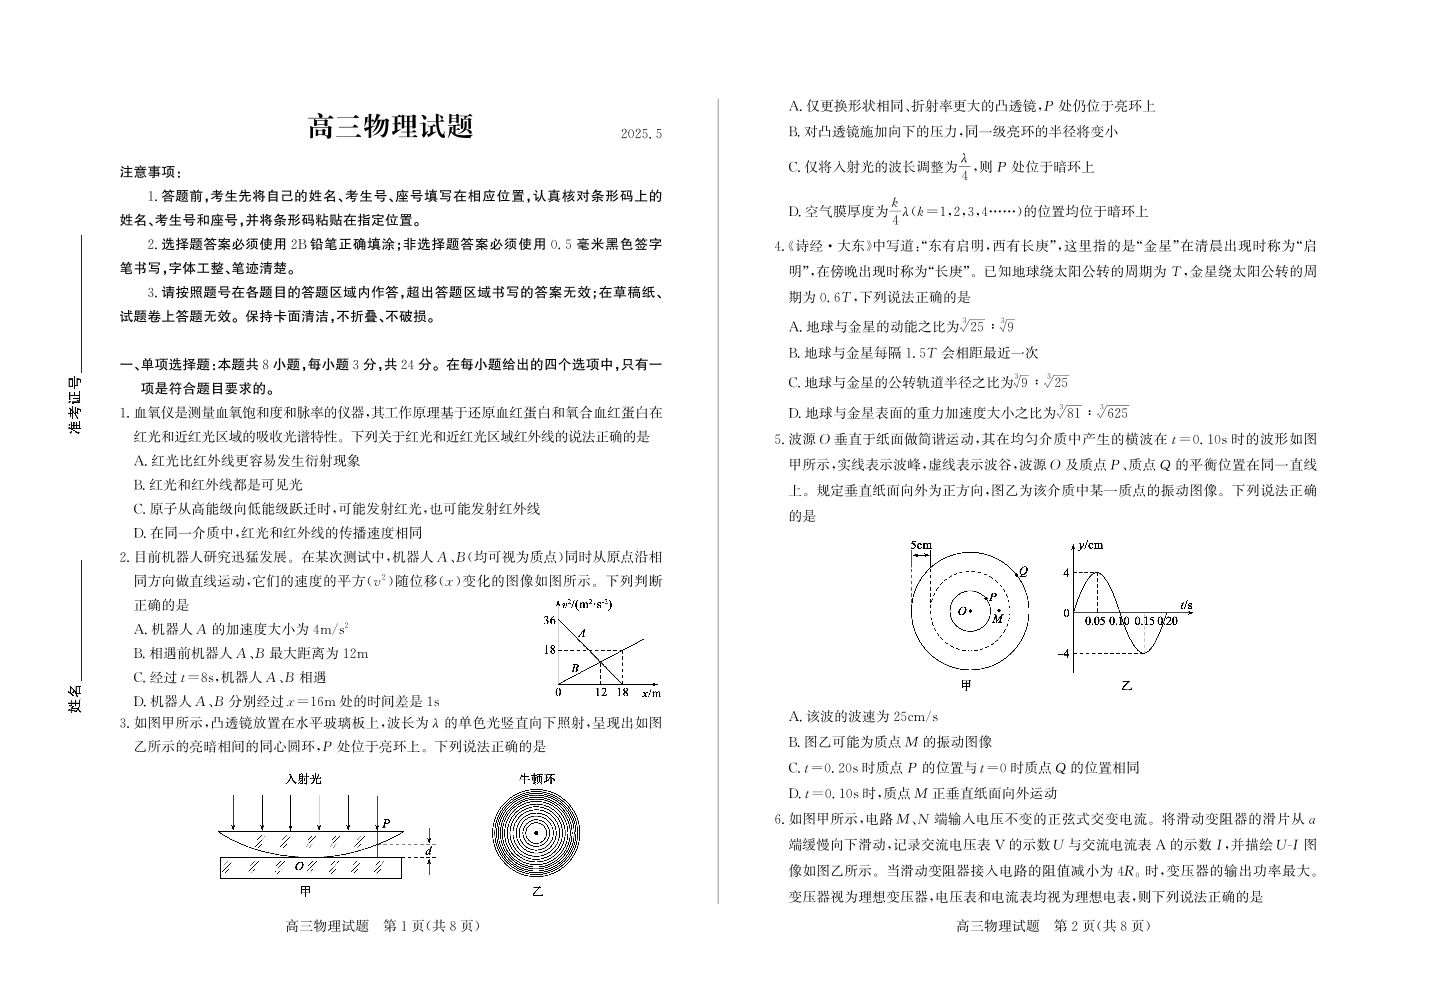 高三物理试题
2025.5
注意事项:
1.答题前,考生先将自己的姓名、考生号、座号填写在相应位置,认真核对条形码上的
姓名、考生号和座号,并将条形码粘贴在指定位置。
2.选择题答案必须使用2B铅笔正确填涂;非选择题答案必须使用0.5毫米黑色签字
笔书写,字体工整、笔迹清楚。
3.请按照题号在各题目的答题区域内作答,超出答题区域书写的答案无效;在草稿纸、
试题卷上答题无效。保持卡面清洁,不折叠、不破损。
准考证号
姓名
一、单项选择题:本题共8小题,每小题3分,共24分。在每小题给出的四个选项中,只有一
项是符合题目要求的。
1.血氧仪是测量血氧饱和度和脉率的仪器,其工作原理基于还原血红蛋白和氧合血红蛋白在
红光和近红光区域的吸收光谱特性。下列关于红光和近红光区域红外线的说法正确的是
A.红光比红外线更容易发生衍射现象
B.红光和红外线都是可见光
C.原子从高能级向低能级跃迁时,可能发射红光,也可能发射红外线
D.在同一介质中,红光和红外线的传播速度相同
2.目前机器人研究迅猛发展。在某次测试中,机器人A、B(均可视为质点)同时从原点沿相
同方向做直线运动,它们的速度的平方(v²)随位移(x)变化的图像如图所示。下列判断
正确的是
A.机器人A的加速度大小为4m/s²
B.相遇前机器人A、B最大距离为12m
C.经过t=8s,机器人A、B相遇
D.机器人A、B分别经过x=16m处的时间差是1s
v²/(m²·s⁻²)
36
A
18
B
0 12 18 x/m
3.如图甲所示,凸透镜放置在水平玻璃板上,波长为λ的单色光竖直向下照射,呈现出如图
乙所示的亮暗相间的同心圆环,P处位于亮环上。下列说法正确的是
入射光
P
d
O
甲
牛顿环
乙
高三物理试题 第1页(共8页)
A.仅更换形状相同、折射率更大的凸透镜,P处仍位于亮环上
B.对凸透镜施加向下的压力,同一级亮环的半径将变小
C.仅将入射光的波长调整为λ/4,则P处位于暗环上
D.空气膜厚度为k/4λ(k=1,2,3,4……)的位置均位于暗环上
4.《诗经·大东》中写道:“东有启明,西有长庚”,这里指的是“金星”在清晨出现时称为“启
明”,在傍晚出现时称为“长庚”。已知地球绕太阳公转的周期为T,金星绕太阳公转的周
期为0.6T,下列说法正确的是
A.地球与金星的动能之比为∛25:∛9
B.地球与金星每隔1.5T会相距最近一次
C.地球与金星的公转轨道半径之比为∛9:∛25
D.地球与金星表面的重力加速度大小之比为∛81:∛625
5.波源O垂直于纸面做简谐运动,其在均匀介质中产生的横波在t=0.10s时的波形如图
甲所示,实线表示波峰,虚线表示波谷,波源O及质点P、质点Q的平衡位置在同一直线
上。规定垂直纸面向外为正方向,图乙为该介质中某一质点的振动图像。下列说法正确
的是
5cm
Q
P
O
M
甲
y/cm
4
0
0.05 0.10 0.15 0.20
t/s
-4
乙
A.该波的波速为25cm/s
B.图乙可能为质点M的振动图像
C.t=0.20s时质点P的位置与t=0时质点Q的位置相同
D.t=0.10s时,质点M正垂直纸面向外运动
6.如图甲所示,电路M、N端输入电压不变的正弦式交变电流。将滑动变阻器的滑片从a
端缓慢向下滑动,记录交流电压表V的示数U与交流电流表A的示数I,并描绘U-I图
像如图乙所示。当滑动变阻器接入电路的阻值减小为4R₀时,变压器的输出功率最大。
变压器视为理想变压器,电压表和电流表均视为理想电表,则下列说法正确的是
高三物理试题 第2页(共8页)